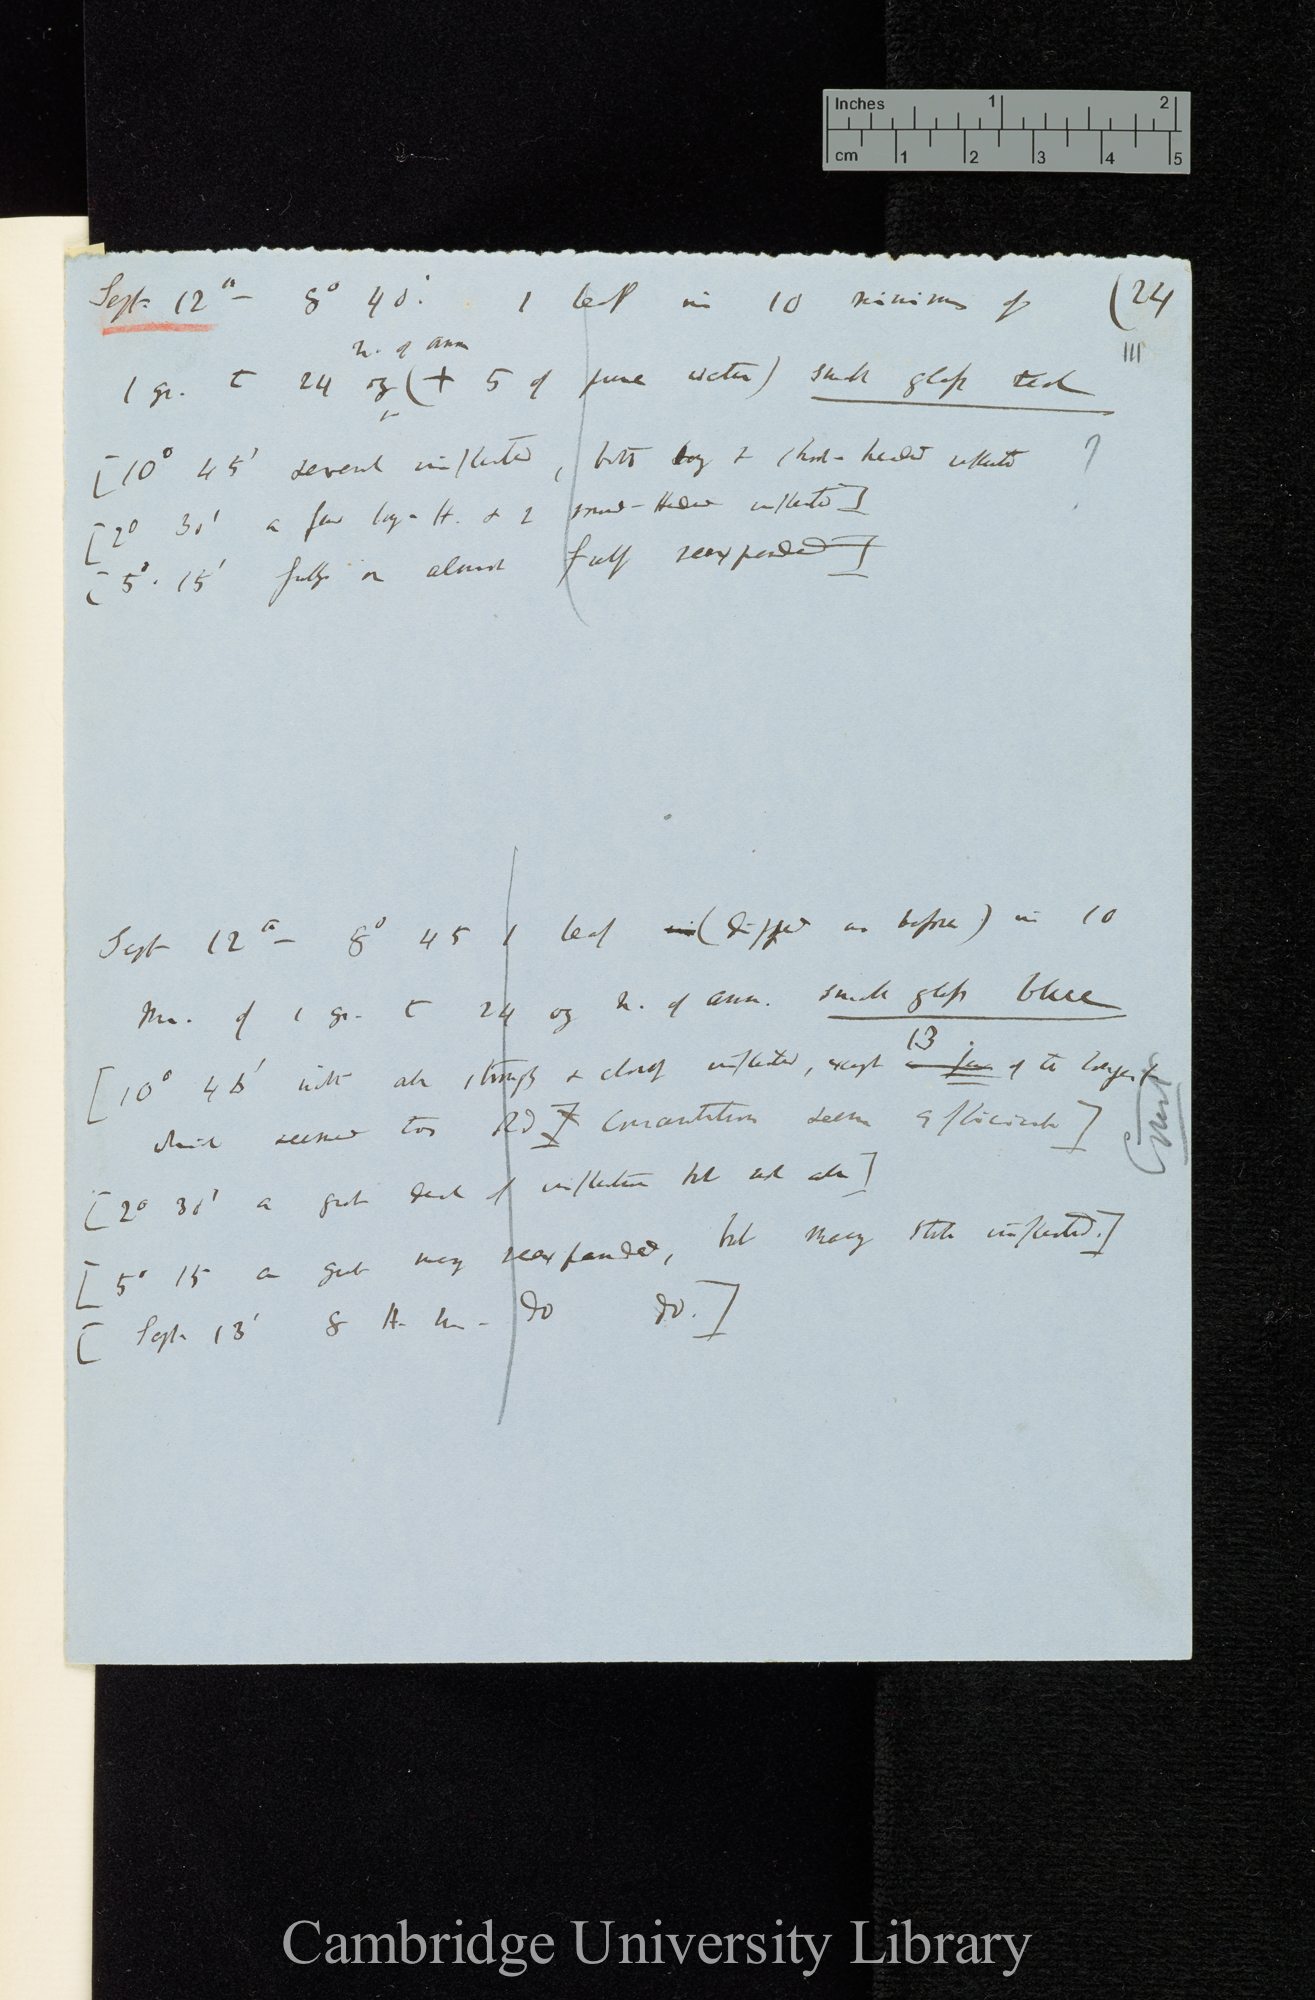 Inches 1 2
cm 1 2 3 4 5
Sept. 12th — 8° 40'. 1 leaf in 10 minims of (24
III
n. of amm
1 gr. to 24 oz (+ 5 of pure water) small glass
[10° 45' several inflected, both long & short-headed ?
[2° 30' a few long-H. & 2 inflected]
[5°. 15' fully or almost fully reexpanded]
Sept 12th — 8° 45 1 leaf in ( as before) in 10
Min. of 1 gr. to 24 oz n. of amm. small glass blue
13
[10° 45' with all strongly & closely inflected, except a few of the longest
which seemed too old constitution seem]
[2° 30' a great deal of inflection but not all]
[5° 15 a great many reexpanded, but many still inflected.]
[Sept 13' 8 A. M. — do do.]
Cambridge University Library